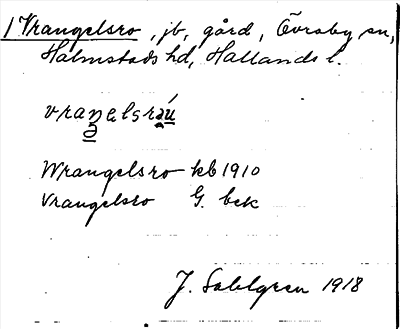 1 Vrangelsro, jb, gård, Övraby sn,
Halmstads hd, Hallands l.
vraŋelsrəú
ə
Wrangelsro kb 1910
Vrangelsro G. bek
J. Sahlgren 1918